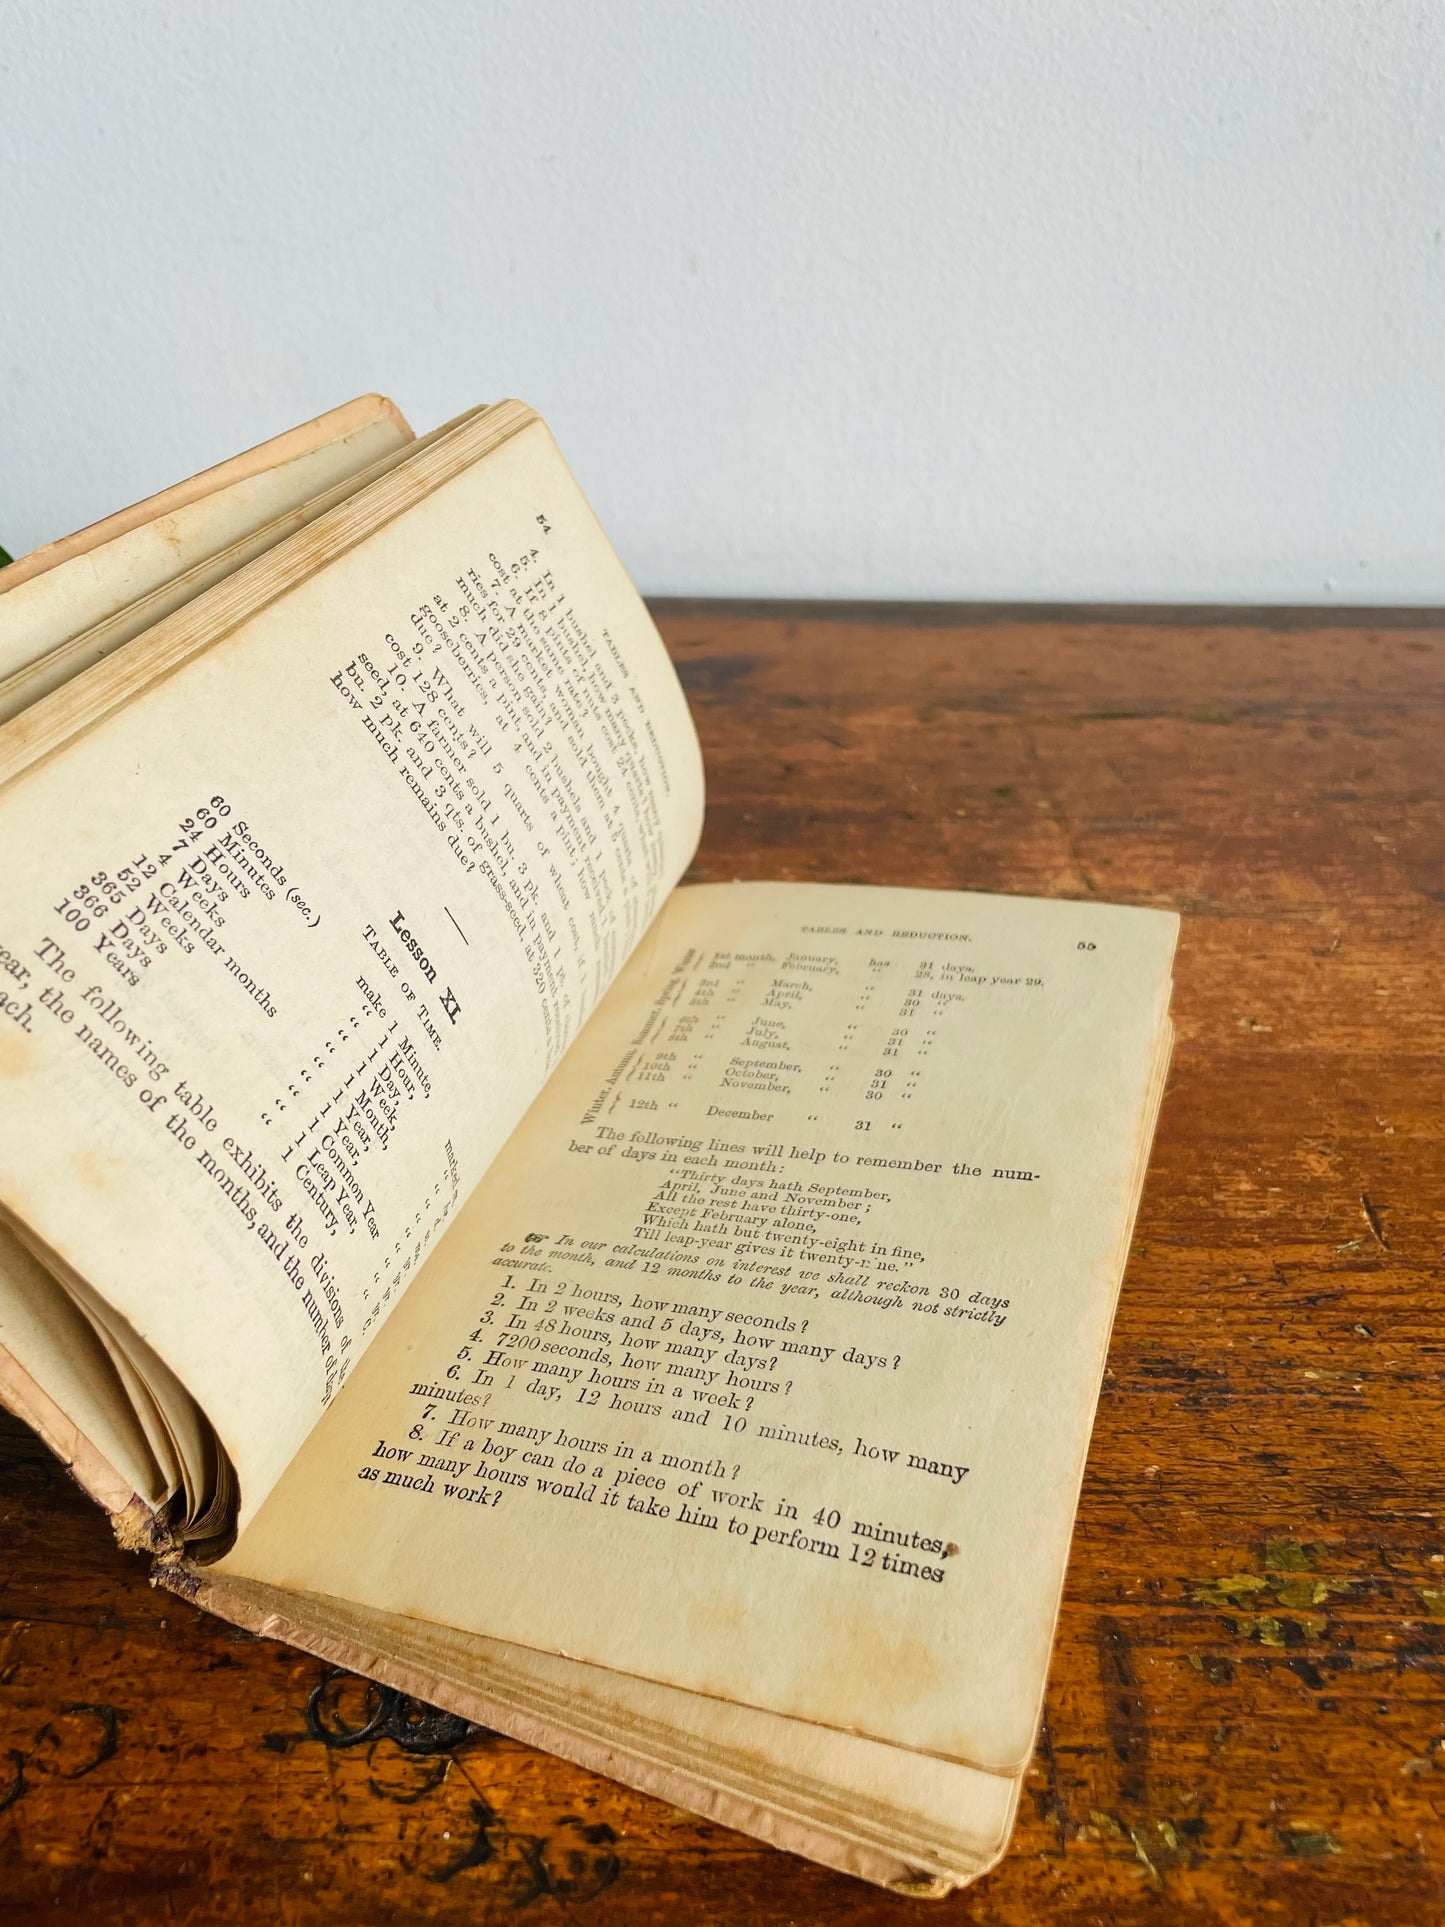 54
TABLES AND REDUCTION.
4. In 1 bushel and 3 pecks, how many
5. In 1 bushel, how many quarts?
6. If 8 pints of nuts cost 24 cents, what will
cost at the same rate?
7. A market woman bought 4 quarts of
ries for 29 cents, and sold them at 5 cents a
much did she gain?
8. A person sold 2 bushels and 1 peck of
at 2 cents a pint, and in payment received
gooseberries, at 4 cents a pint; how much
due?
9. What will 5 quarts of wheat cost, if 1
cost 128 cents?
10. A farmer sold 1 bu. 3 pk. and 1 pt. of
seed, at 640 cents a bushel, and in payment
bu. 2 pk. and 3 qts. of grass-seed, at 320 cents a
how much remains due?
Lesson XI.
TABLE OF TIME.
60 Seconds (sec.) make 1 Minute, marked
60 Minutes “ 1 Hour, “
24 Hours “ 1 Day, “
7 Days “ 1 Week, “
4 Weeks “ 1 Month, “
12 Calendar months “ 1 Year, “
52 Weeks “ 1 Year, “
365 Days “ 1 Common Year “
366 Days “ 1 Leap Year, “
100 Years “ 1 Century, “
The following table exhibits the divisions of
year, the names of the months, and the number of days
each.
TABLES AND REDUCTION. 55
Winter, Autumn, Summer, Spring, Winter
1st month, January, has 31 days.
2nd “ February, “ 28, in leap year 29.
3rd “ March, “ 31 days.
4th “ April, “ 30 “
5th “ May, “ 31 “
6th “ June, “ 30 “
7th “ July, “ 31 “
8th “ August, “ 31 “
9th “ September, “ 30 “
10th “ October, “ 31 “
11th “ November, “ 30 “
12th “ December “ 31 “
The following lines will help to remember the num-
ber of days in each month:
“Thirty days hath September,
April, June and November;
All the rest have thirty-one,
Except February alone,
Which hath but twenty-eight in fine,
Till leap-year gives it twenty-nine.”
☞ In our calculations on interest we shall reckon 30 days
to the month, and 12 months to the year, although not strictly
accurate.
1. In 2 hours, how many seconds?
2. In 2 weeks and 5 days, how many days?
3. In 48 hours, how many days?
4. 7200 seconds, how many hours?
5. How many hours in a week?
6. In 1 day, 12 hours and 10 minutes, how many
minutes?
7. How many hours in a month?
8. If a boy can do a piece of work in 40 minutes,
how many hours would it take him to perform 12 times
as much work?